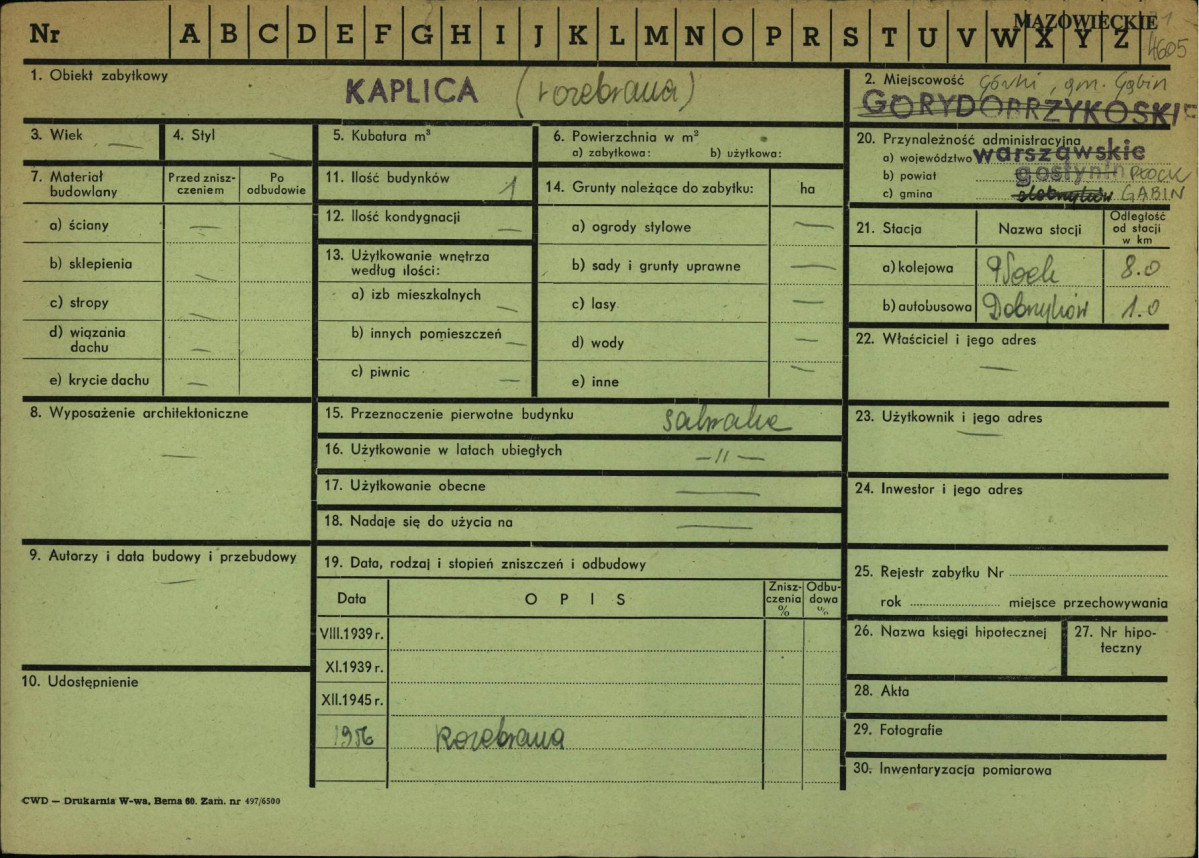 Nr A B C D E F G H I J K L M N O P R S T U V W X Y Z
MAZOWIECKIE
4605
1. Obiekt zabytkowy KAPLICA (rozebrana)
2. Miejscowość Górki, gm. Gąbin
GÓRY DOBRZYKOSKIE
3. Wiek —
4. Styl —
5. Kubatura m³
6. Powierzchnia w m²
a) zabytkowa: b) użytkowa:
20. Przynależność administracyjna
a) województwo warszawskie
b) powiat gostynin PŁOCK
c) gmina dobrzyków GĄBIN
7. Materiał budowlany
Przed zniszczeniem
Po odbudowie
a) ściany —
b) sklepienia —
c) stropy —
d) wiązania dachu —
e) krycie dachu —
11. Ilość budynków 1
12. Ilość kondygnacji —
13. Użytkowanie wnętrza według ilości:
a) izb mieszkalnych —
b) innych pomieszczeń —
c) piwnic —
14. Grunty należące do zabytku: ha
a) ogrody stylowe —
b) sady i grunty uprawne —
c) lasy —
d) wody —
e) inne —
21. Stacja Nazwa stacji Odległość od stacji w km
a) kolejowa Płock 8.0
b) autobusowa Dobrzyków 1.0
22. Właściciel i jego adres
—
8. Wyposażenie architektoniczne
—
15. Przeznaczenie pierwotne budynku sakralne
16. Użytkowanie w latach ubiegłych —"—
17. Użytkowanie obecne —
18. Nadaje się do użycia na —
23. Użytkownik i jego adres
—
24. Inwestor i jego adres
9. Autorzy i data budowy i przebudowy
—
19. Data, rodzaj i stopień zniszczeń i odbudowy
Data OPIS Zniszczenia % Odbudowa %
VIII.1939 r.
XI.1939 r.
XII.1945 r.
1956 Rozebrana
25. Rejestr zabytku Nr
rok miejsce przechowywania
26. Nazwa księgi hipotecznej
27. Nr hipoteczny
10. Udostępnienie
28. Akta
29. Fotografie
30. Inwentaryzacja pomiarowa
CWD — Drukarnia W-wa, Bema 60. Zam. nr 497/6500